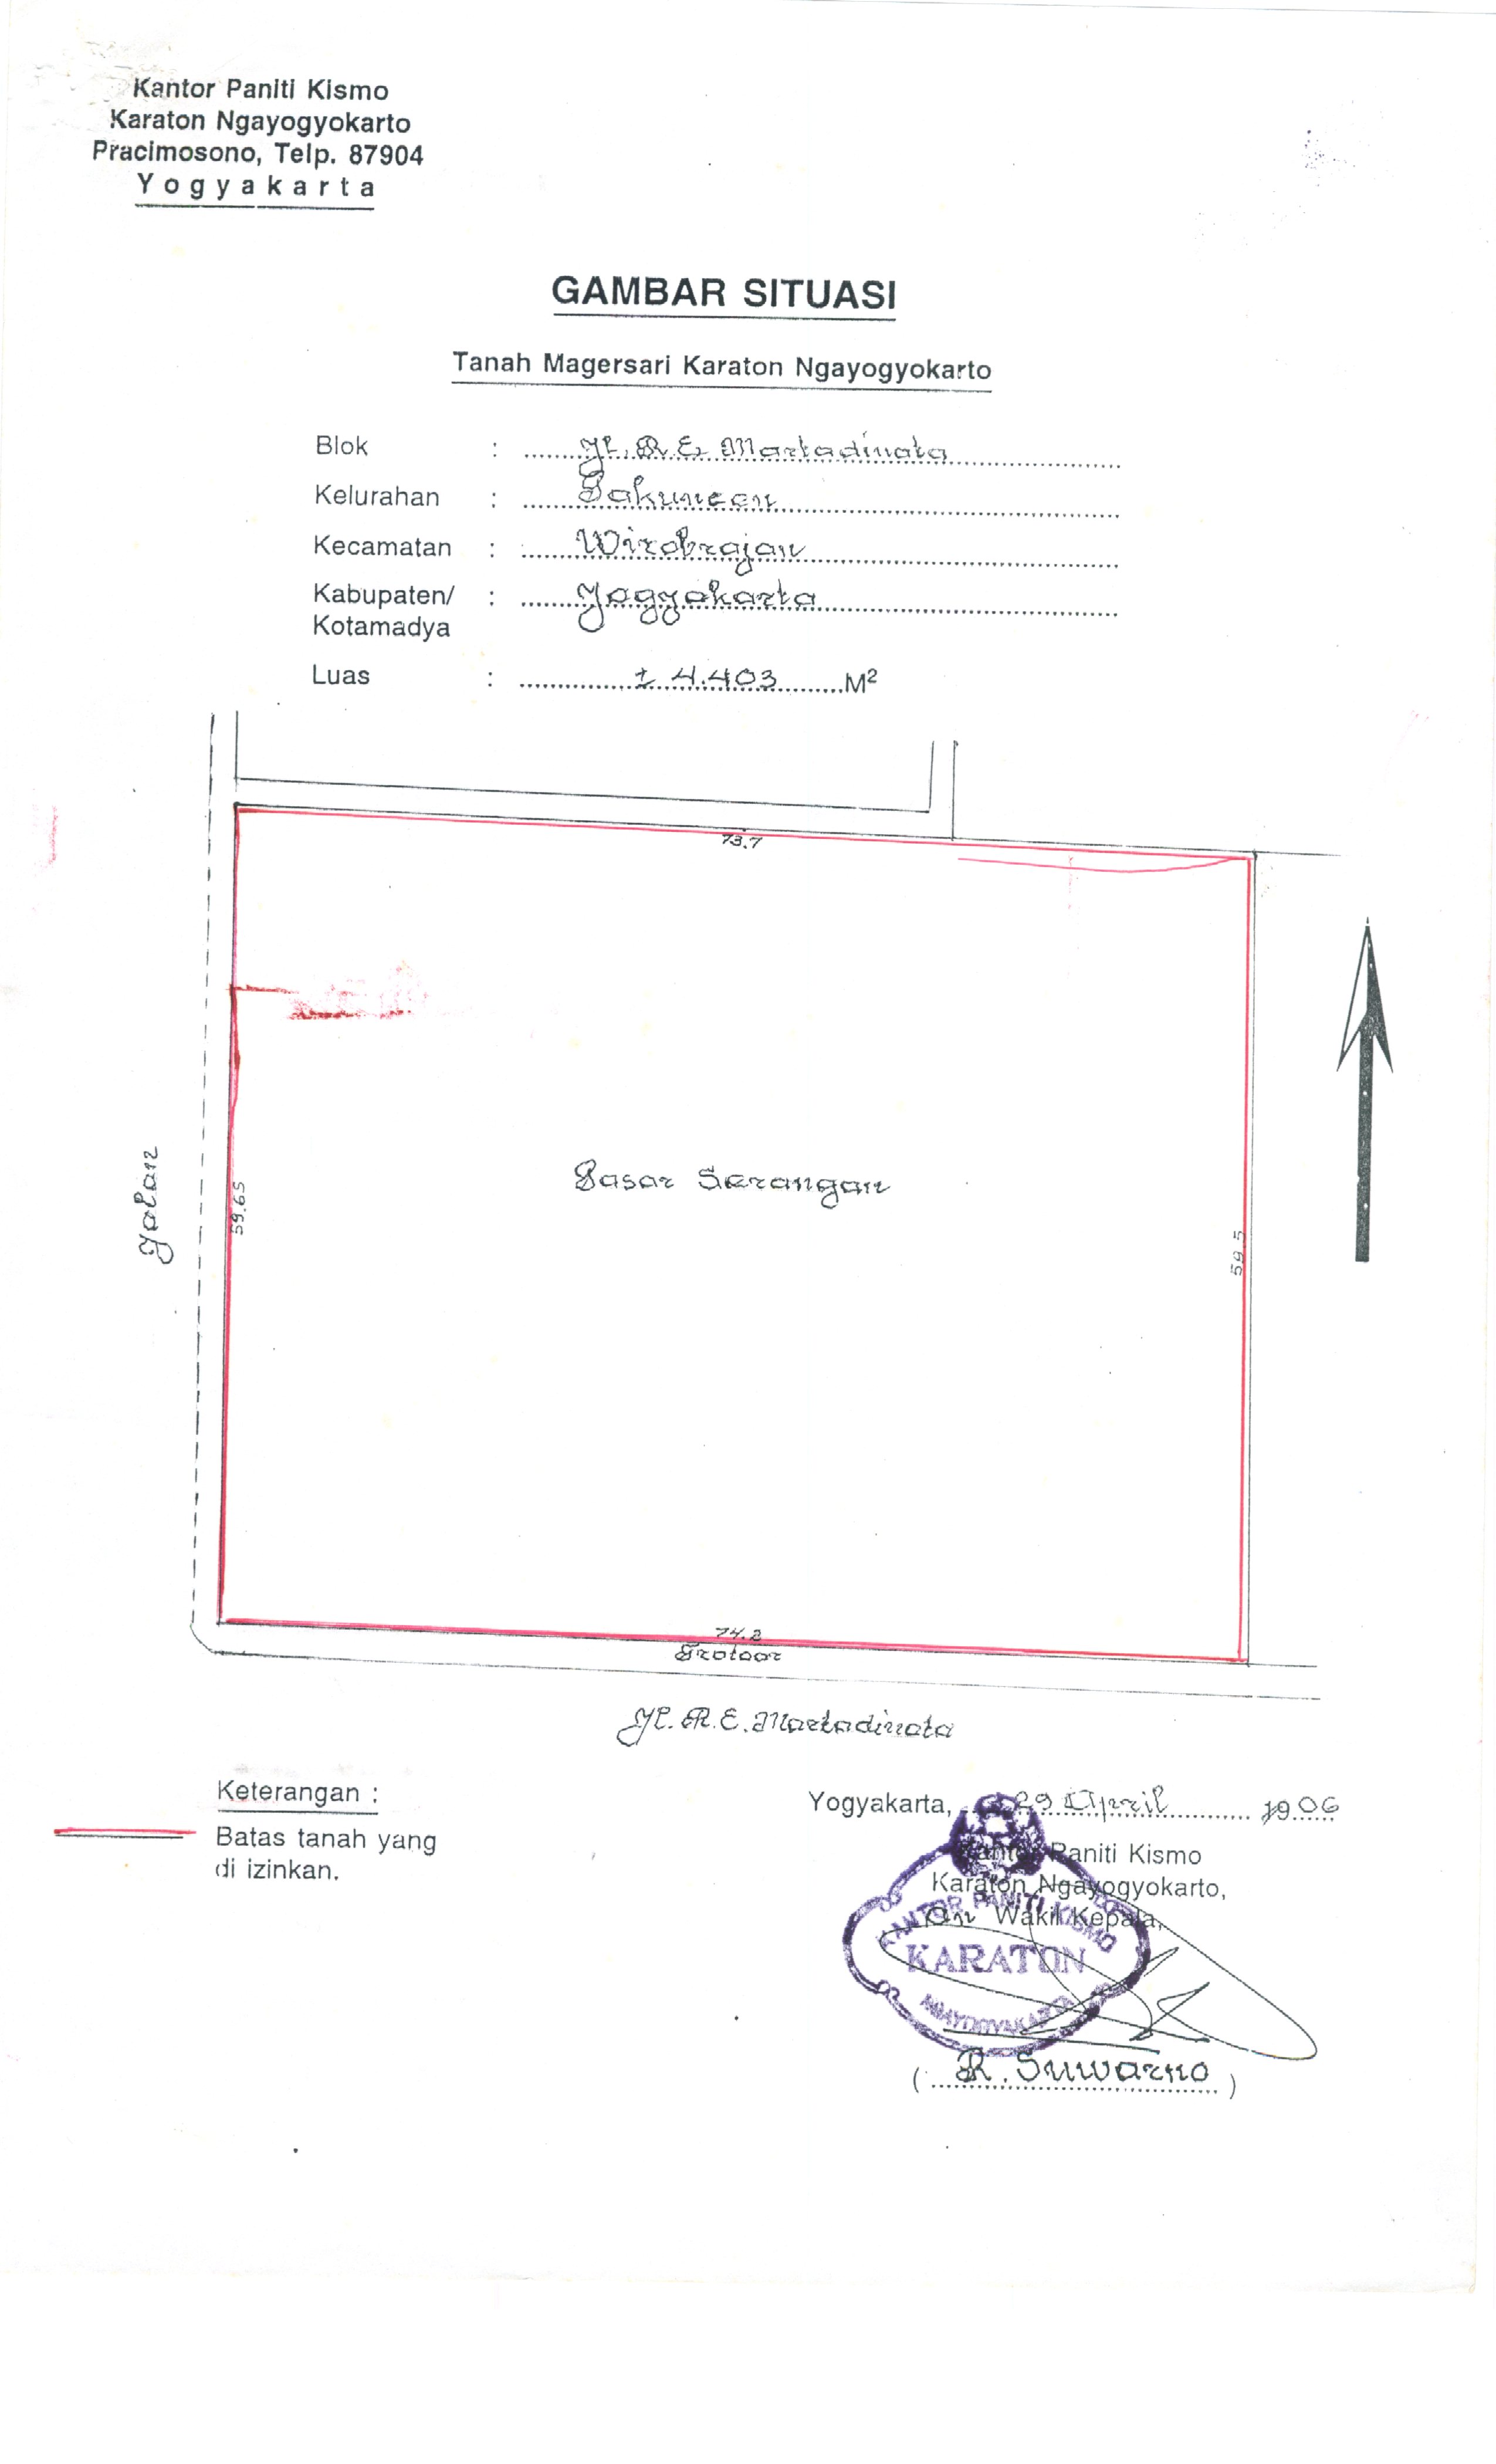 Kantor Paniti Kismo
Karaton Ngayogyokarto
Pracimosono, Telp. 87904
Yogyakarta
GAMBAR SITUASI
Tanah Magersari Karaton Ngayogyokarto
Blok : Jl. R E Martadinata
Kelurahan : Pakuncen
Kecamatan : Wirobrajan
Kabupaten/ : Yogyakarta
Kotamadya
Luas : ± 4.403 M²
73.7
Jalan
59.65
Pasar Serangan
59.5
74.2
Trotoar
Jl. R.E. Martadinata
Keterangan :
Batas tanah yang
di izinkan.
Yogyakarta, 29 April 1906
Kantor Paniti Kismo
Karaton Ngayogyokarto,
An Wakil Kepala,
KANTOR PANITI KISMO
KARATON
NGAYOGYAKARTA
( R. Suwarno )